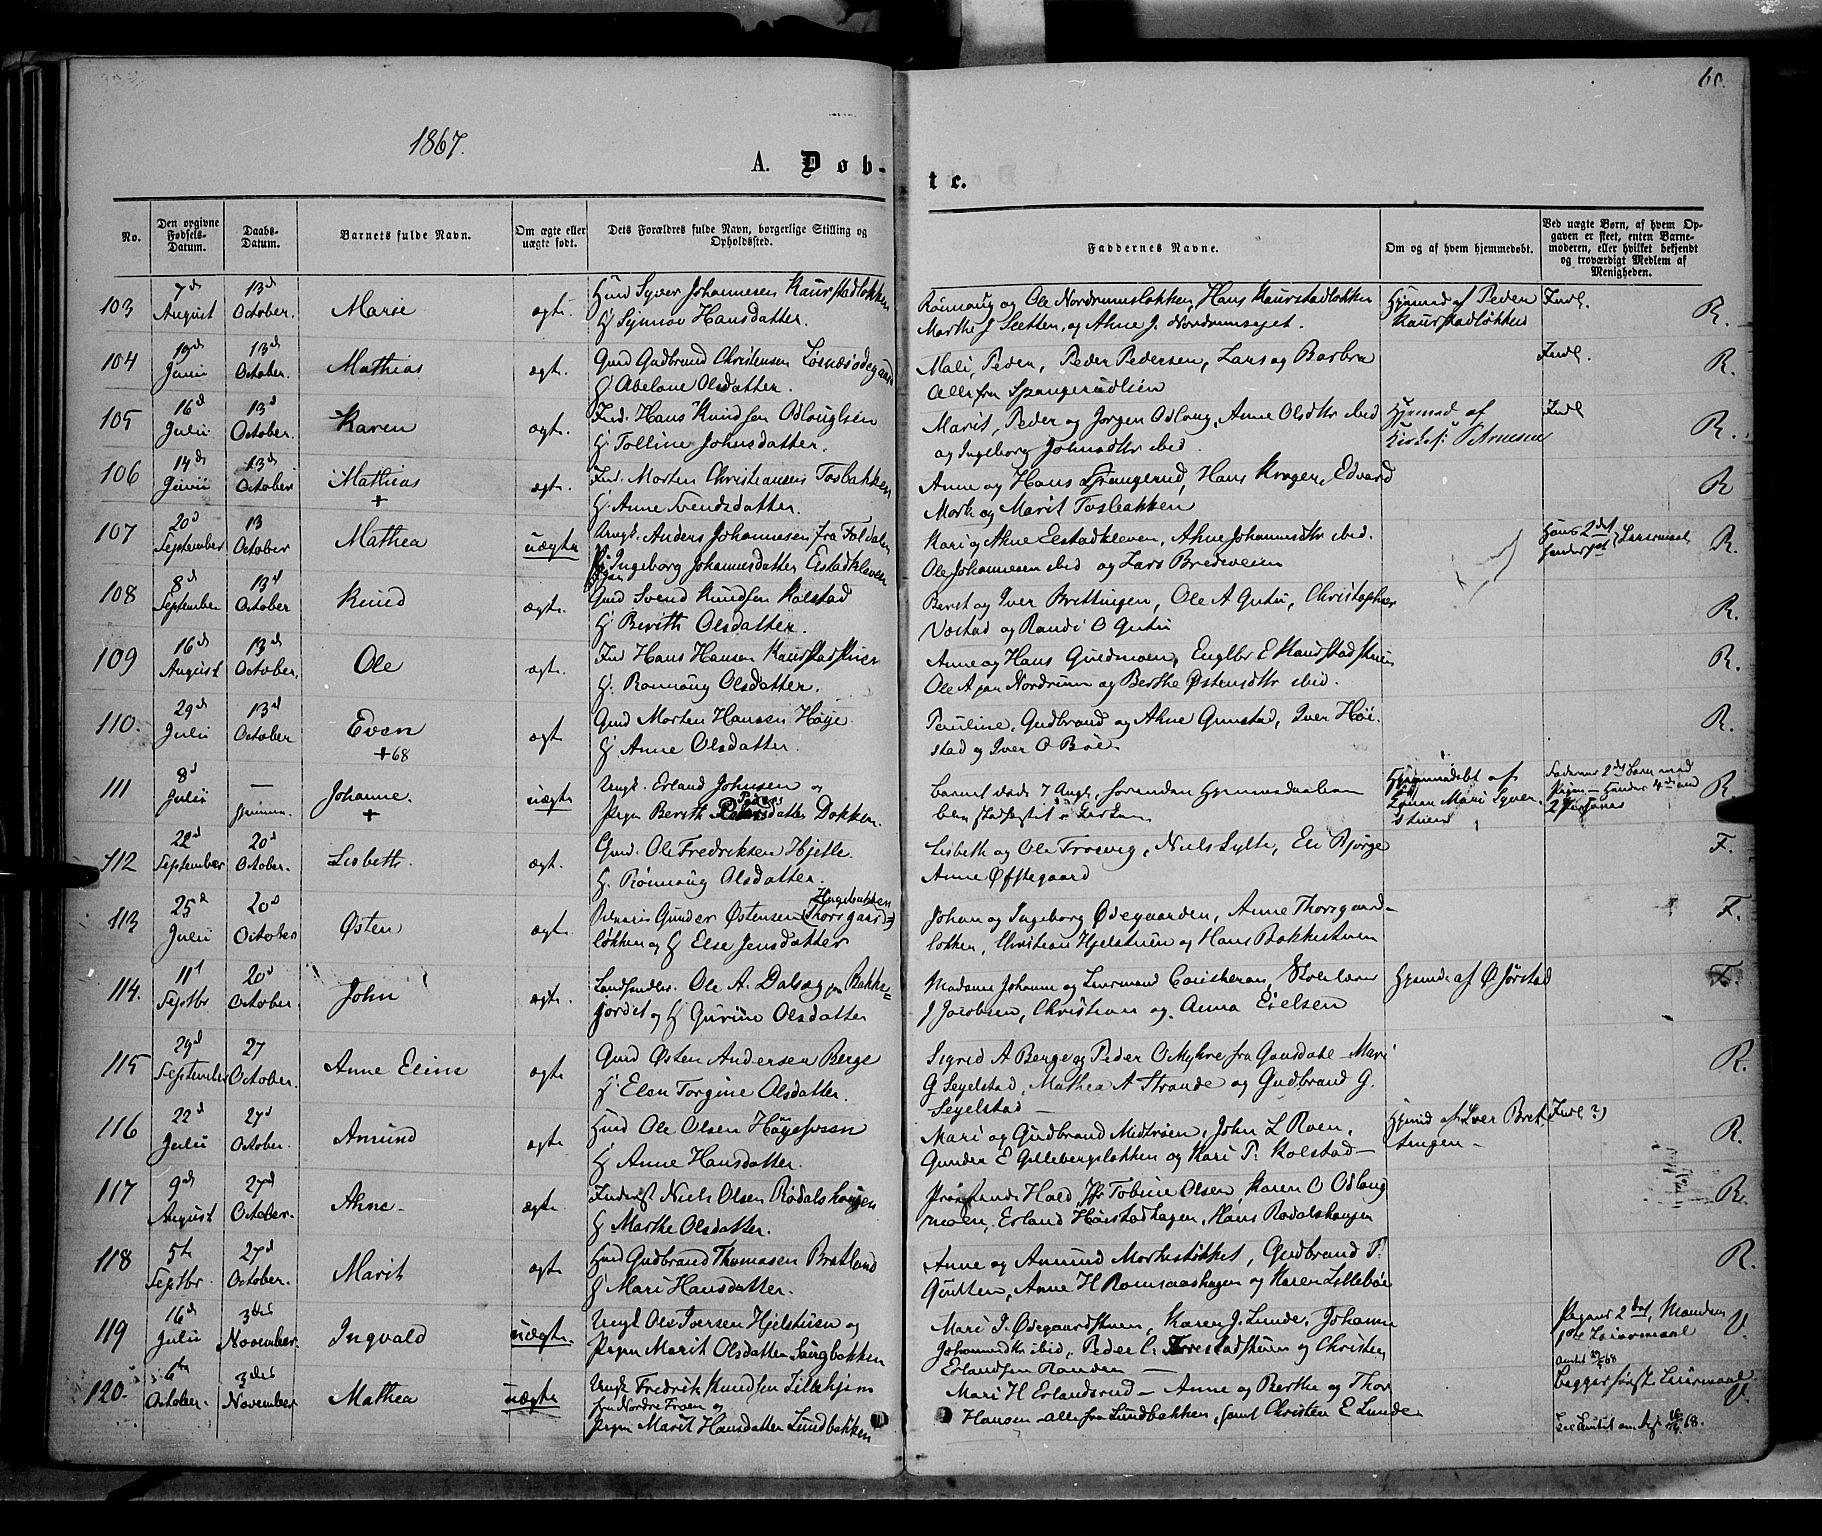 60.
1867.
A. Døb-
te.
No.
Den opgivne Fødsels-Datum.
Daabs-Datum.
Barnets fulde Navn.
Om ægte eller uægte født.
Dets Forældres fulde Navn, borgerlige Stilling og Opholdssted.
Faddernes Navne.
Om og af hvem hjemmedøbt.
Ved uægte Børn, af hvem Opgaven er skeet, enten Barnemoderen, eller hvilket bekjendt og troværdigt Medlem af Menigheden.
103 7de August 13d October. Marie ægt.
Syver Johannesen Kaurstadløkken
Hansdatter.
Rønnaug og Ole Nordrumsløkken, Hans Kaurstadløkken
Marthe J Sletten, og Ahne J. Nordrumseget.
af Peder Kaurstadløkken
R.
104 19d Juni 13d October. Mathias ægt.
Gmd Gudbrand Christensen
Abelone Olsdatter.
Mali, Peder, Peder Pedersen, Lars og Barbra
Alle fra Spangrudlien
R.
105 16d Julii 13d October. Karen ægt.
Ind. Hans Knudsen Odlouglien
Johnsdatter.
Marit, Peder og Jørgen Odloug, Anne Olsdtr ibid
og Ingeborg Johnsdtr ibid.
R.
106 14de Junii 13d October Mathias + ægt.
Ind. Morten Christiansen Tosbakken
Anne Svendsdatter.
Anne og Hans Spangrud, Hans Krager, Edvard
Mork og Marit Tosbakken
R
107 20d September 13 October Mathea uægte
Ungk. Anders Johannesen fra Foldalen
Ingeborg Johannesdatter Eistadkleven
Kari og Ahne Eistadkleven, Ahne Johannesdtr ibid.
Ole Johannesen ibid og Lars Bredeveien
R.
108 8d September 13d October Knud ægte.
Gmd Svend Knudsen Kolstad
Berith Olsdatter.
Beret og Iver Brettingen, Ole A Gutu, Christopher
og Randi O Gutu
R.
109 16d August 13d October. Ole ægt.
Ind Hans Hansen Kaurstadstuen
Rønnaug Olsdatter.
Anne og Hans Guldmoen, Englbr E Kaurstadstuen
Ole A Nordrum og Berthe Østensdtr ibid.
R.
110. 29d Julii 13d October Even +68 ægt
Gmd Morten Hansen Høye
Anne Olsdatter.
Pauline, Gudbrand og Ahne Grinstad, Iver Høi-
stad og Iver O Bøe
R.
111 8d Julii — Johanne. + uægte
Ungk. Erland Johnsen og
Pigen Berith Pedersdatter Dokken.
Barnet døde 7 Augt, forinden Hjemmedaaben
blev stadfæstet i Kirken
Hjemmedøbt af
R
112 22d September 20d October. Lisbeth ægt.
Gmd. Ole Fredriksen Hjetle
Rønnaug Olsdatter.
Lisbeth og Ole Trosvig, Niels Sylte, Eli Bjørge
Anne Øfstegaard
F.
113 25d Julii 20d October Østen ægt.
Gunder Østensen
løkken og Else Jensdatter
Johan og Ingeborg Ødegaarden, Anne Thorsgaard-
løkken, Christian Hjelstuen og Hans Bakkestuen
F.
114. 11t Septbr 20d October. John ægt.
Landhndler. Ole A. Dalseg Bakke-
jordet og Gurine Olsdatter
Madame Johanne og Lensmand
J Jacobsen, Christian og Anna Eielsen
af Ø Jørstad
F.
115 29d September 27 October. Anne Eline ægte
Gmd Østen Andersen Berge
Elen Torgine Olsdatter.
Sigrid A Berge og Peder O Myhre fra Gausdal — Mari
G Segelstad, Mathea A Strande og Gudbrand G.
Segelstad —
R.
116 22d Julii 27d October. Amund ægte
Ole Olsen
Anne Hansdatter.
Mari og Gudbrand Midtmoen, John L Roen,
Gunder E Gillebergsløkken og Kari P. Kolstad —
af Iver Bret
tingen —
R.
117 9de August 27d October. Ahne ægte
Niels Olsen Rodalshougen
Marthe Olsdatter.
Hald, Jfr Tobine Olsen, Karen O Odloug
moen, Erland Høistadhagen, Hans Rodalshaugen
R.
118 5te Septbr. 27d October. Marit ægte
Gudbrand Thomassen Bratland
Mari Hansdatter.
Anne og Amund Morkestøkket, Gudbrand P.
Gutten, Anne H Romsaashagen og Karen Lillebøe
R.
119 16d Julii 3die November. Ingvald uægte.
Ungk Ole Iversen Hjelstuen og
Pigen Marit Olsdatter
Mari P. Ødegaardstuen, Karen J. Lunde, Johanne
Johannesdtr ibid, Peder C. og Christen
Erlandsen Randen —
Pigens 2det, Mandens
Leiermaal
V.
120. 6te October. 3die November Mathea uægte
Ungk Fredrik Knudsen
fra Nordre Froen og
Pigen Marit Hansdatter Lundbakken
Mari H Erlandsrud — Anne og Berthe og Thor
Hansen alle fra Lundbakken, samt Christen E Lunde
Begges første Leiermaal.
V.